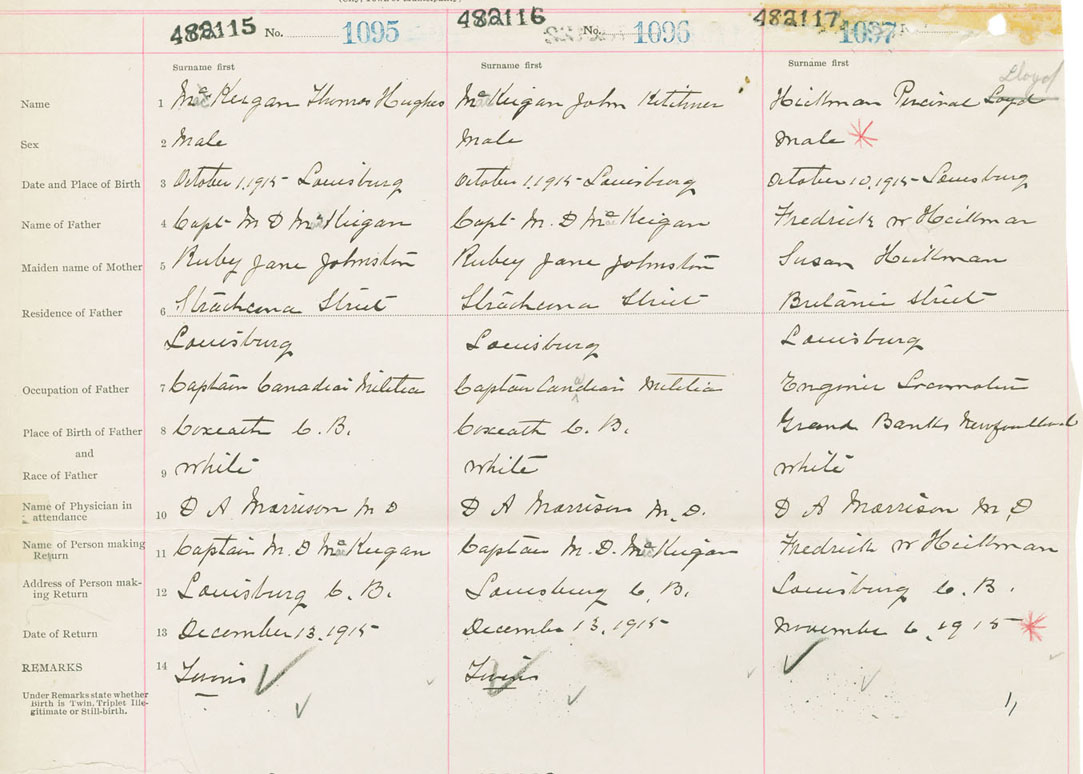 482115 No. 1095 482116 No. 1096 482117 1097
Surname first Surname first Surname first
Lloyd
Name 1 McKeigan Thomas Hughes McKeigan John Kitchner Hickman Percival Loyd
Sex 2 Male Male Male
Date and Place of Birth 3 October 1, 1915 Louisburg October 1, 1915 Louisburg October 10, 1915 Louisburg
Name of Father 4 Capt M D McKeigan Capt M. D McKeigan Fredrick W Hickman
Maiden name of Mother 5 Ruby Jane Johnston Rubey Jane Johnston Susan Hickman
Residence of Father 6 Strathcona Street Strathcona Street Britanic Street
Louisburg Louisburg Louisburg
Occupation of Father 7 Captain Canadian Militia Captain Canadian Militia Enginer Locomotive
Place of Birth of Father 8 Coxeath C. B. Coxeath C. B. Grand Banks Newfoundland
and
Race of Father 9 White White White
Name of Physician in attendance 10 D A Morrison M D D A Morrison M. D. D A Morrison M. D
Name of Person making Return 11 Captain M. D McKeigan Captain M. D. McKeigan Fredrick W Hickman
Address of Person mak-
ing Return 12 Louisburg C. B. Louisburg C. B. Louisburg C. B.
Date of Return 13 December 13, 1915 December 13, 1915 November 6, 1915
REMARKS 14 Twins Twins
Under Remarks state whether
Birth is Twin, Triplet Ille-
gitimate or Still-birth.